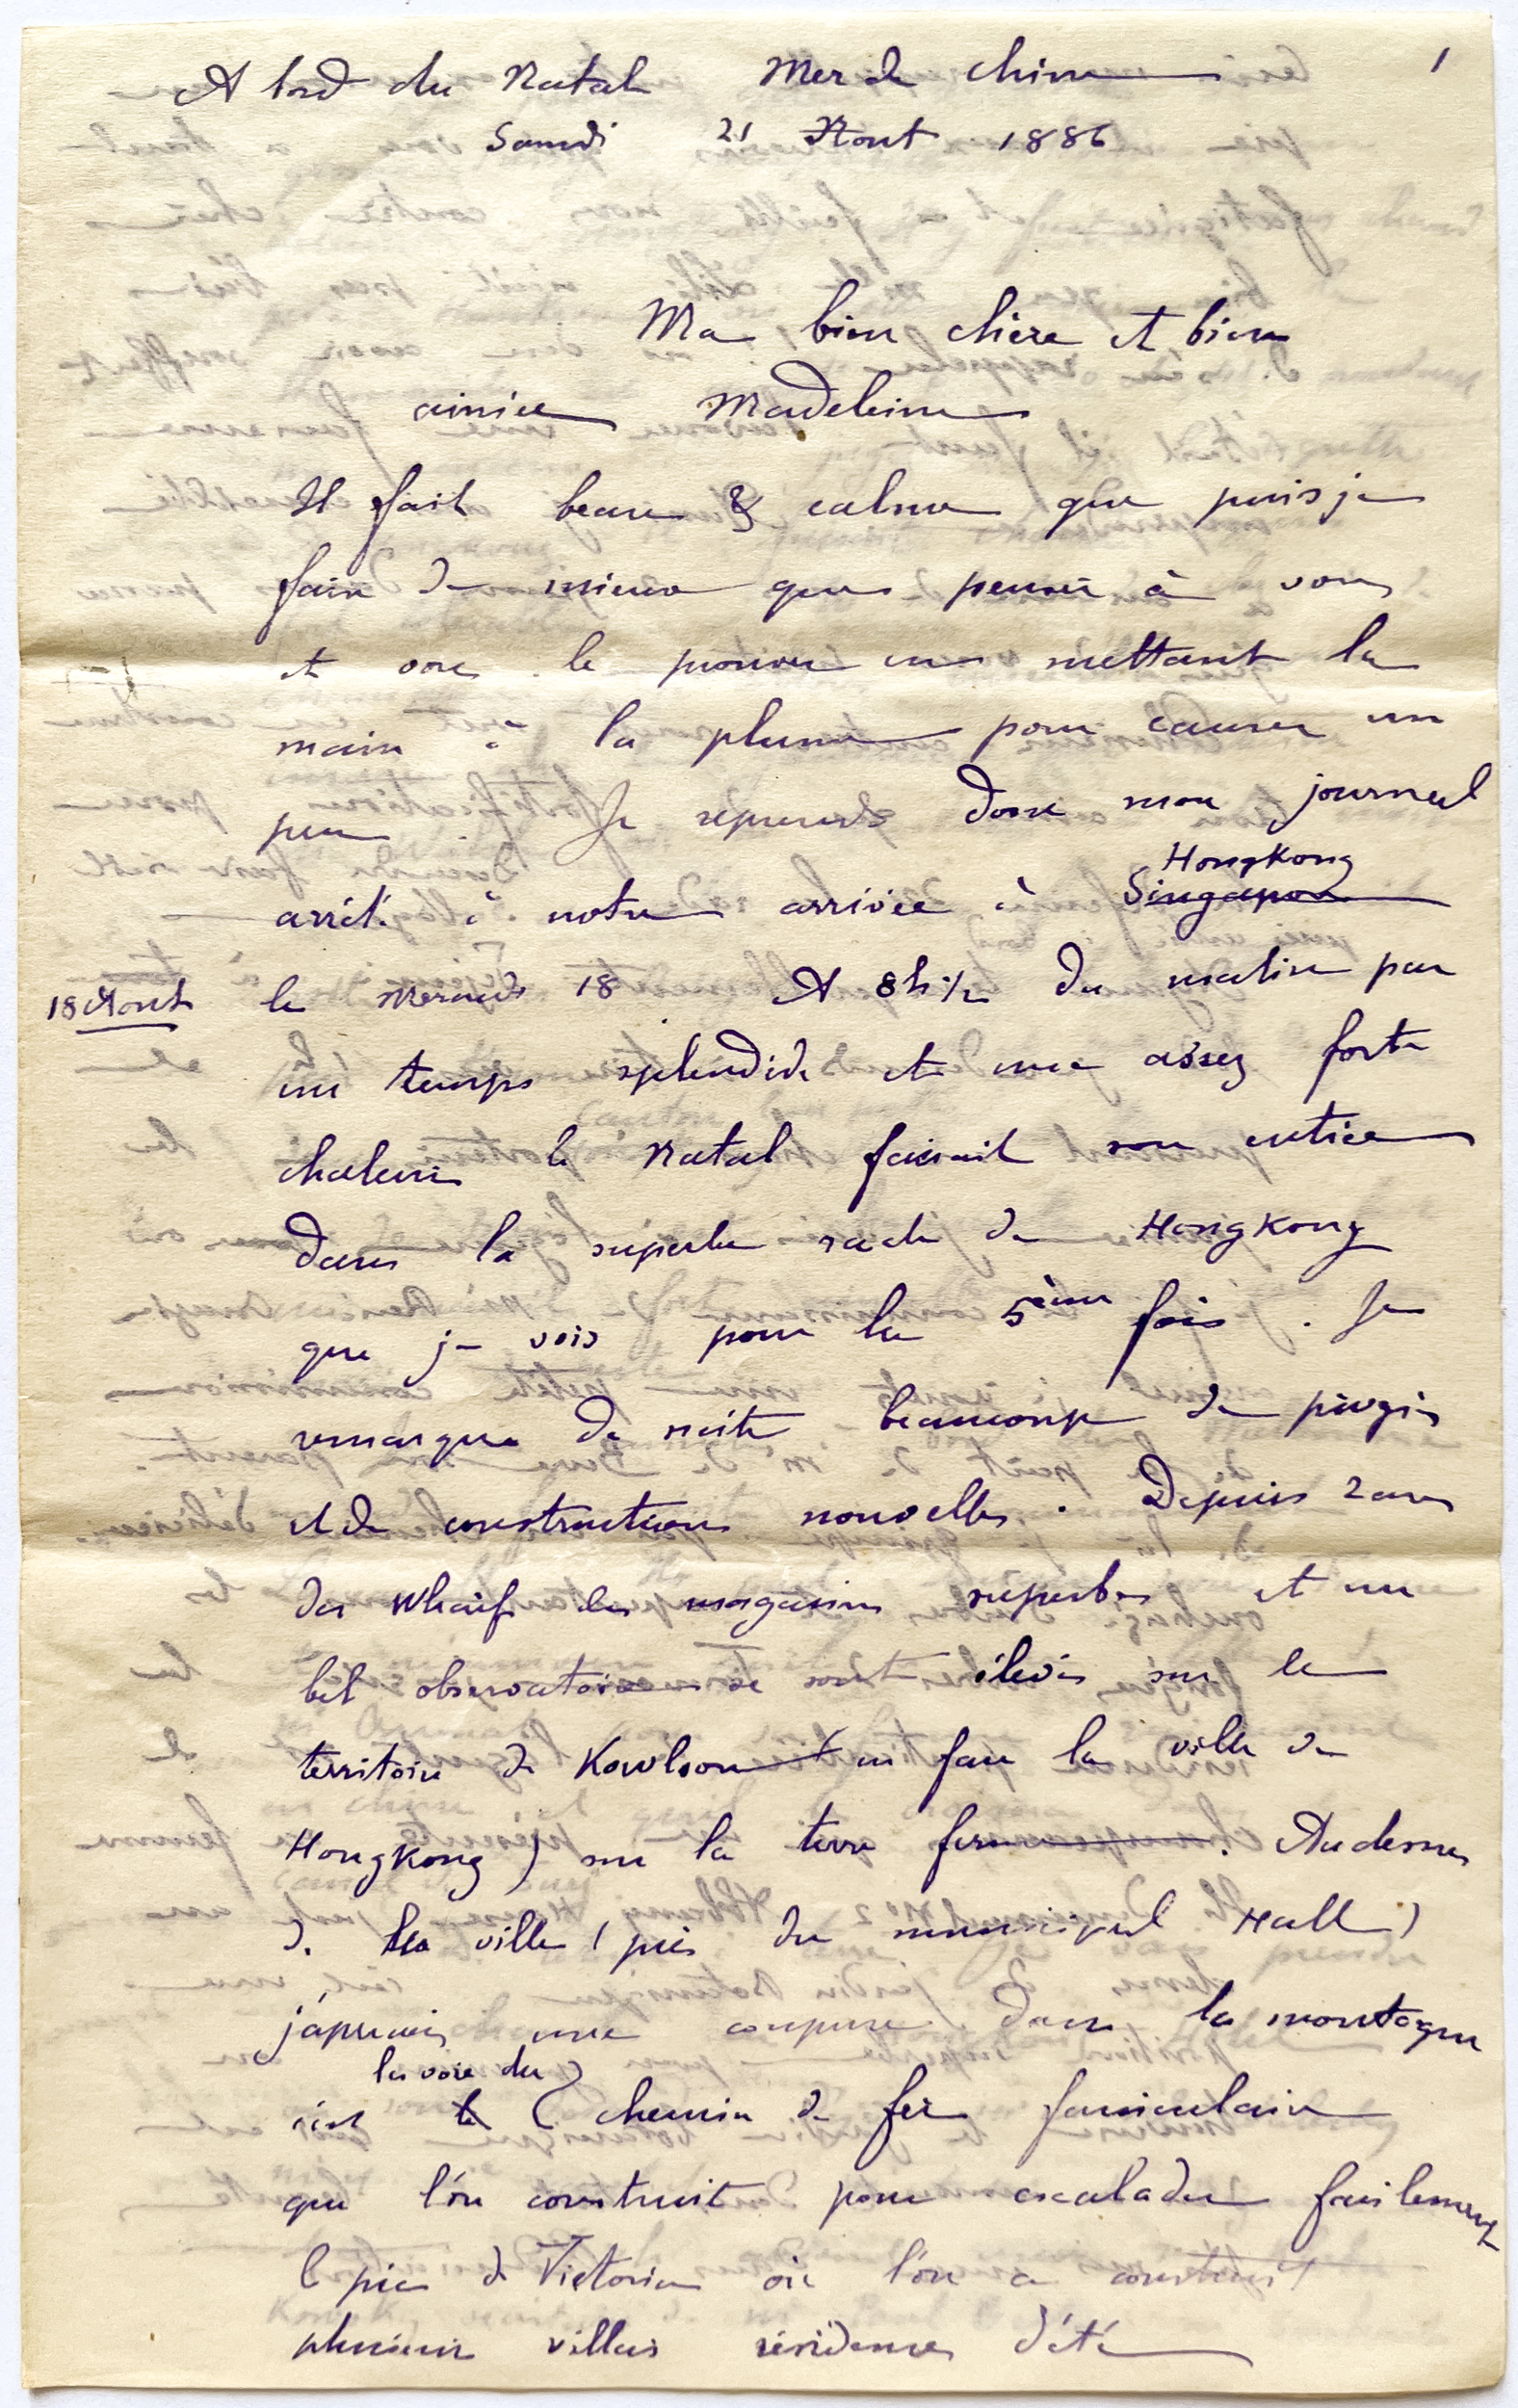 1
A bord du Natal Mer de Chine
Samedi 21 Aout 1886
Ma bien chère et bien
aimée Madeleine
Il fait beau & calme que puis je
faire de mieux que penser à vous
et vous le prouver en mettant la
main à la plume pour causer un
peu. Je reprends donc mon journal
Hongkong
arrêté à notre arrivée à Singapore
18 Aout le Mercredi 18 A 8h 1/2 du matin par
un temps splendide et une assez forte
chaleur le Natal faisait son entrée
dans la superbe rade de HongKong
que je vois pour la 5ème fois. Je
remarque de suite beaucoup de progrès
et de constructions nouvelles. Depuis 2 ans
des wharfs des magasins superbes et un
bel observatoire se sont élevés sur le
territoire de Kowloon (en face la ville de
HongKong) sur la terre ferme. Au dessus
de la ville (près du municipal Hall)
j'aperçois une coupure dans la montagne
la voie du
c'est le chemin de fer funiculaire
que l'on construit pour escalader facilement
le pic de Victoria où l'on a construit
plusieurs villas résidences d'été